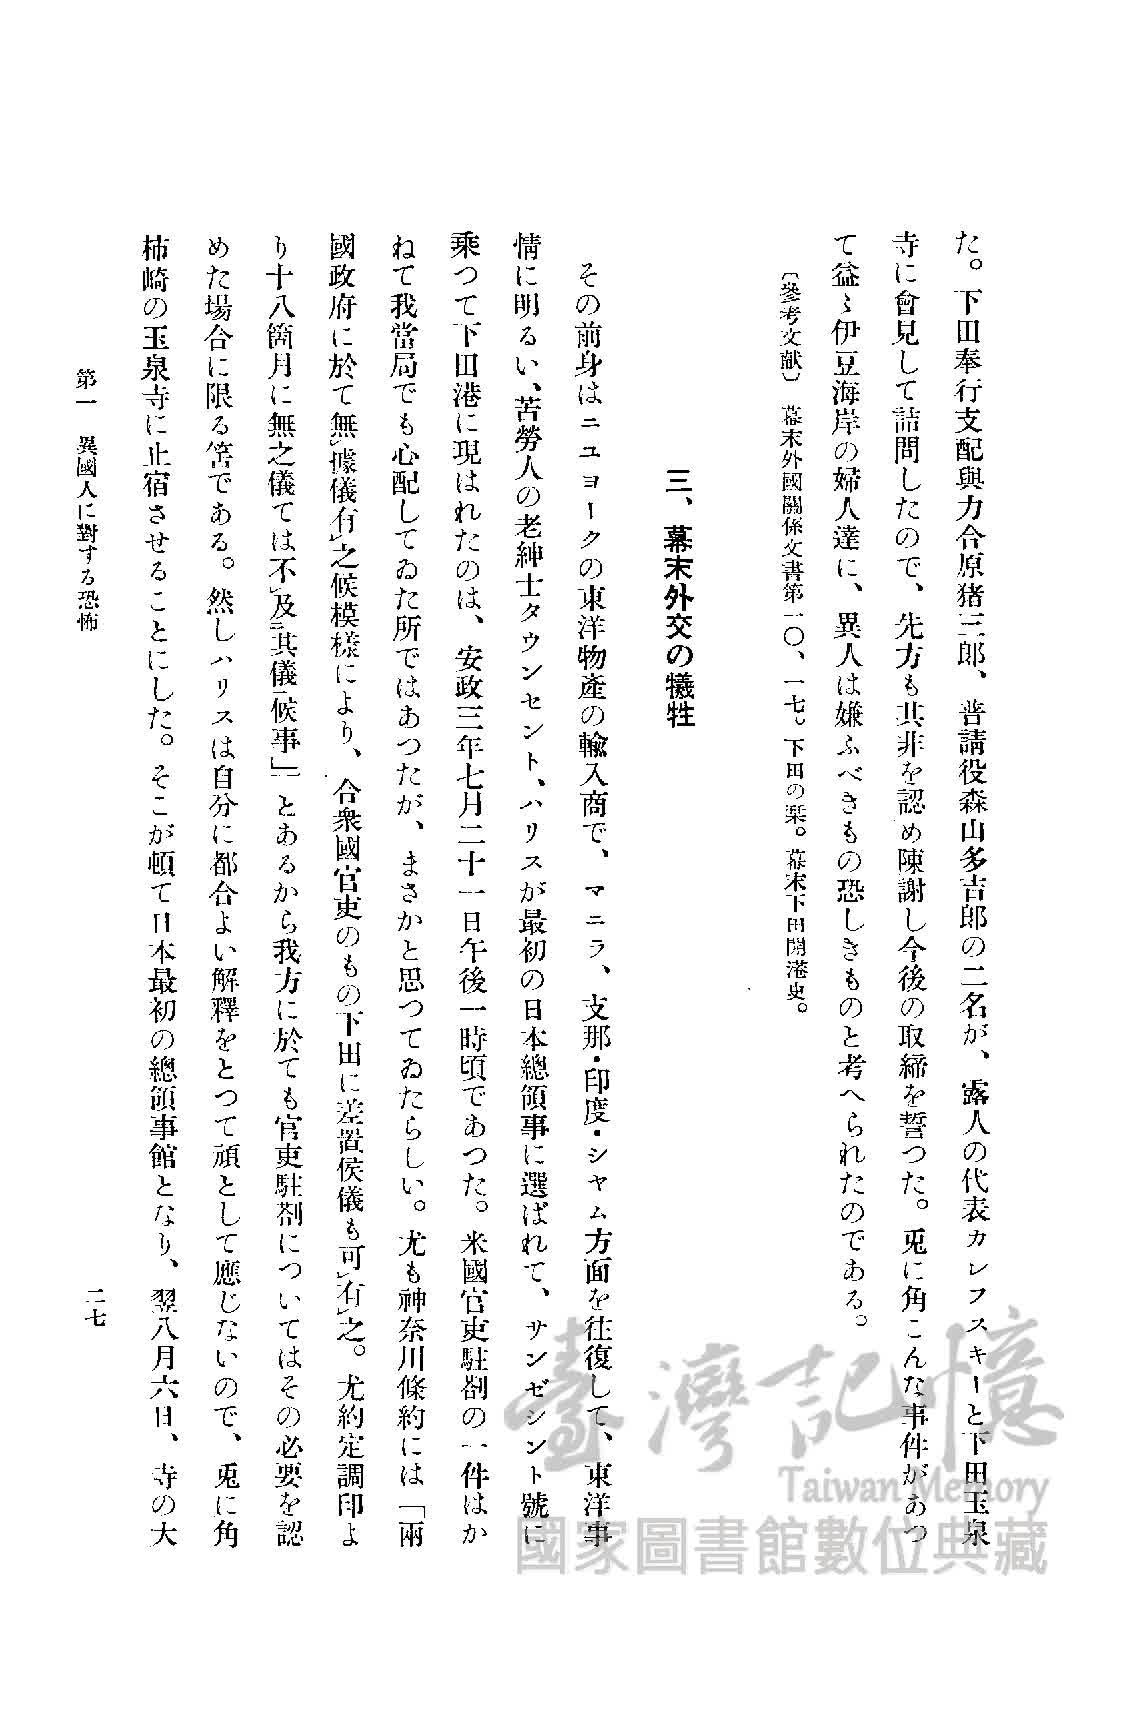 た。下田奉行支配與力合原猪三郎、普請役森山多吉郎の二名が、露人の代表カレフスキーと下田玉泉
寺に會見して詰問したので、先方も其非を認め陳謝し今後の取締を誓つた。兎に角こんな事件があつ
て益〻伊豆海岸の婦人達に、異人は嫌ふべきもの恐しきものと考へられたのである。
〔參考文献〕 幕末外國關係文書第一〇、一七。下田の栞。幕末下田開港史。
三、幕末外交の犠牲
その前身はニユヨークの東洋物產の輸入商で、マニラ、支那・印度・シヤム方面を往復して、東洋事
情に明るい、苦勞人の老紳士タウンセント、ハリスが最初の日本總領事に選ばれて、サンゼシント號に
乘つて下田港に現はれたのは、安政三年七月二十一日午後一時頃であつた。米國官吏駐剳の一件はか
ねて我當局でも心配してゐた所ではあつたが、まさかと思つてゐたらしい。尤も神奈川條約には「兩
國政府に於て無㆑據儀有㆑之候模樣により、合衆國官吏のもの下田に差置侯儀も可㆑有㆑之。尤約定調印よ
り十八箇月に無之儀ては不㆑及㆓其儀㆒候事」とあるから我方に於ても官吏駐剳についてはその必要を認
めた場合に限る筈である。然しハリスは自分に都合よい解釋をとつて頑として應じないので、兎に角
柿崎の玉泉寺に止宿させることにした。そこが頓て日本最初の總領事館となり、翌八月六日、寺の大
第一 異國人に對する恐怖
二七
臺灣記憶
Taiwan Memory
國家圖書館數位典藏